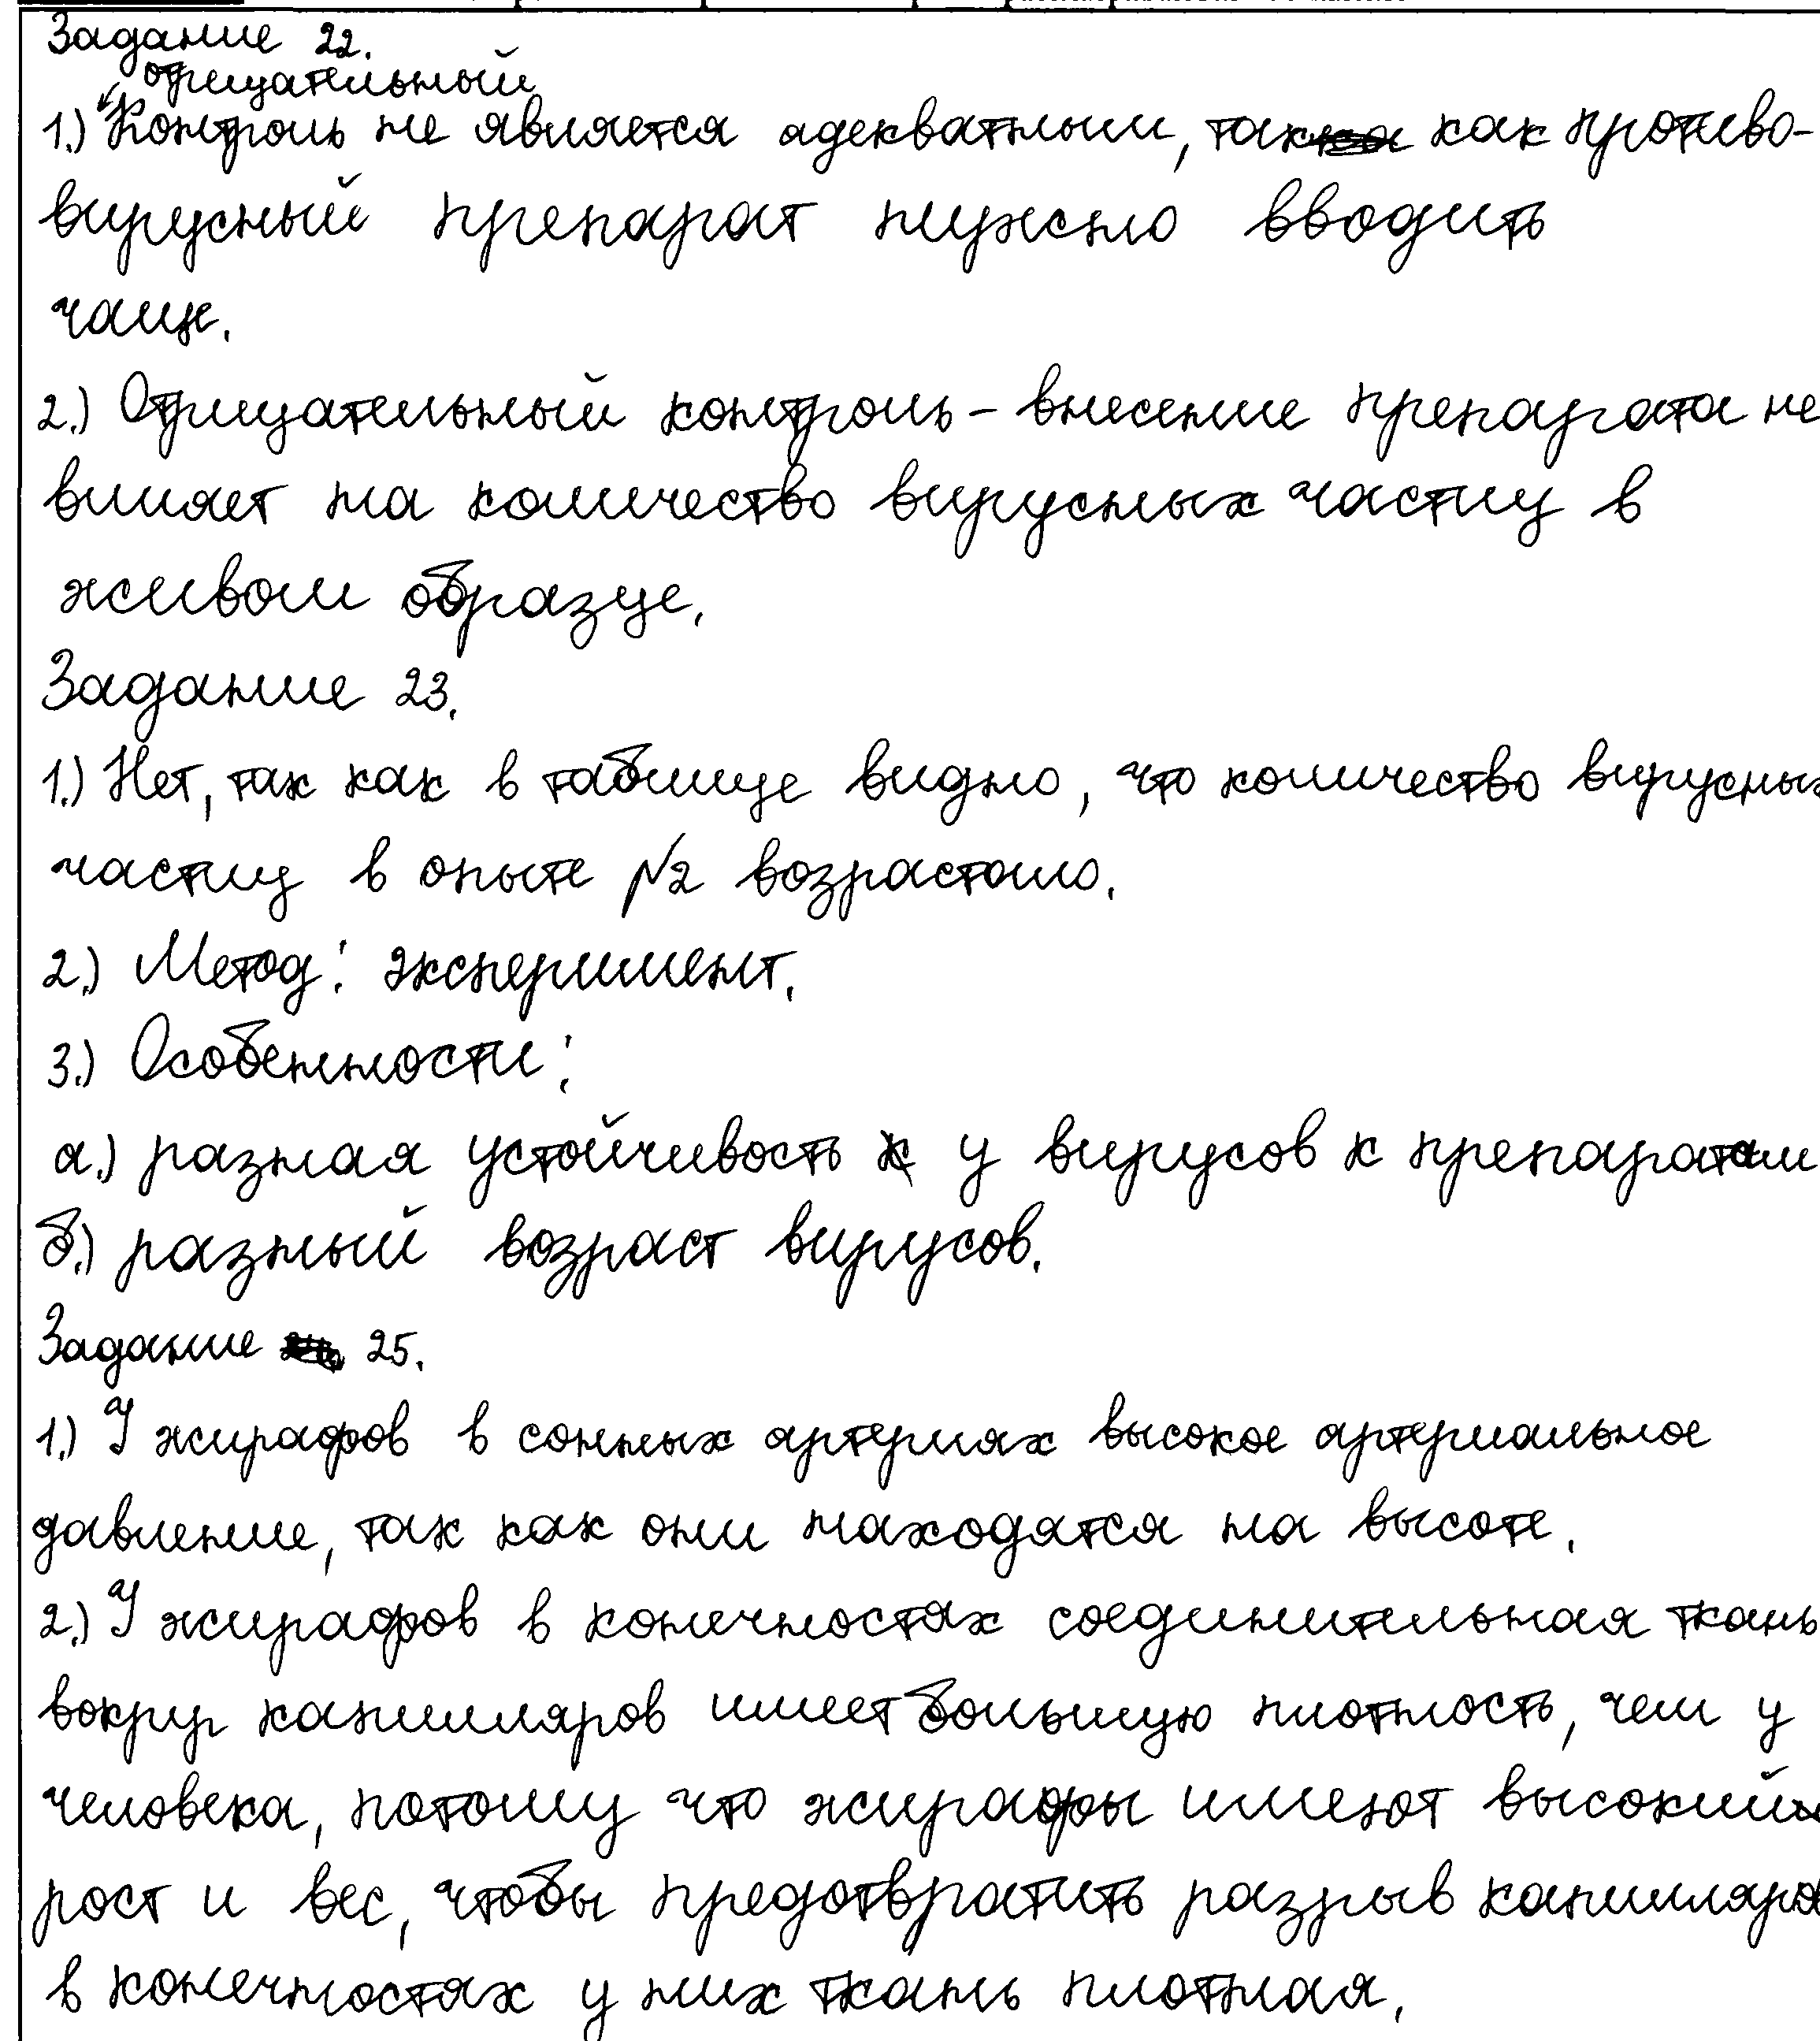 Задание 22.
отрицательный
1.) Контроль не является адекватным, так как противо-
вирусный препарат нужно вводить
чаще.
2.) Отрицательный контроль – внесение препарата не
влияет на количество вирусных частиц в
живом образце.
Задание 23.
1.) Нет, так как в таблице видно, что количество вирусных
частиц в опыте №2 возрастало.
2.) Метод: эксперимент.
3.) Особенности:
а.) разная устойчивость у вирусов к препаратам
б.) разный возраст вирусов.
Задание 25.
1.) У жирафов в сонных артериях высокое артериальное
давление, так как они находятся на высоте.
2.) У жирафов в конечностях соединительная ткань
вокруг капилляров имеет большую плотность, чем у
человека, потому что жирафы имеют высокий
рост и вес, чтобы предотвратить разрыв капилляро
в конечностях у них ткань плотная.